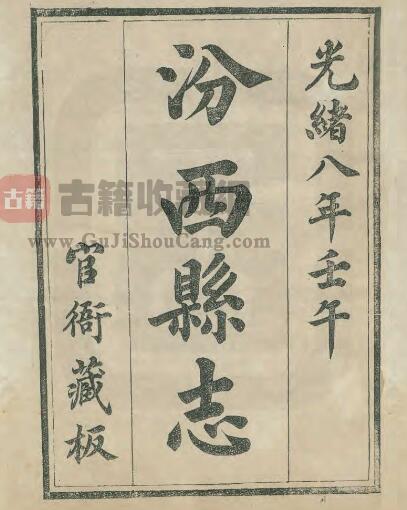 光緒八年壬午
汾西縣志
官衙藏板
古籍
古籍收藏网
www.GuJiShouCang.com